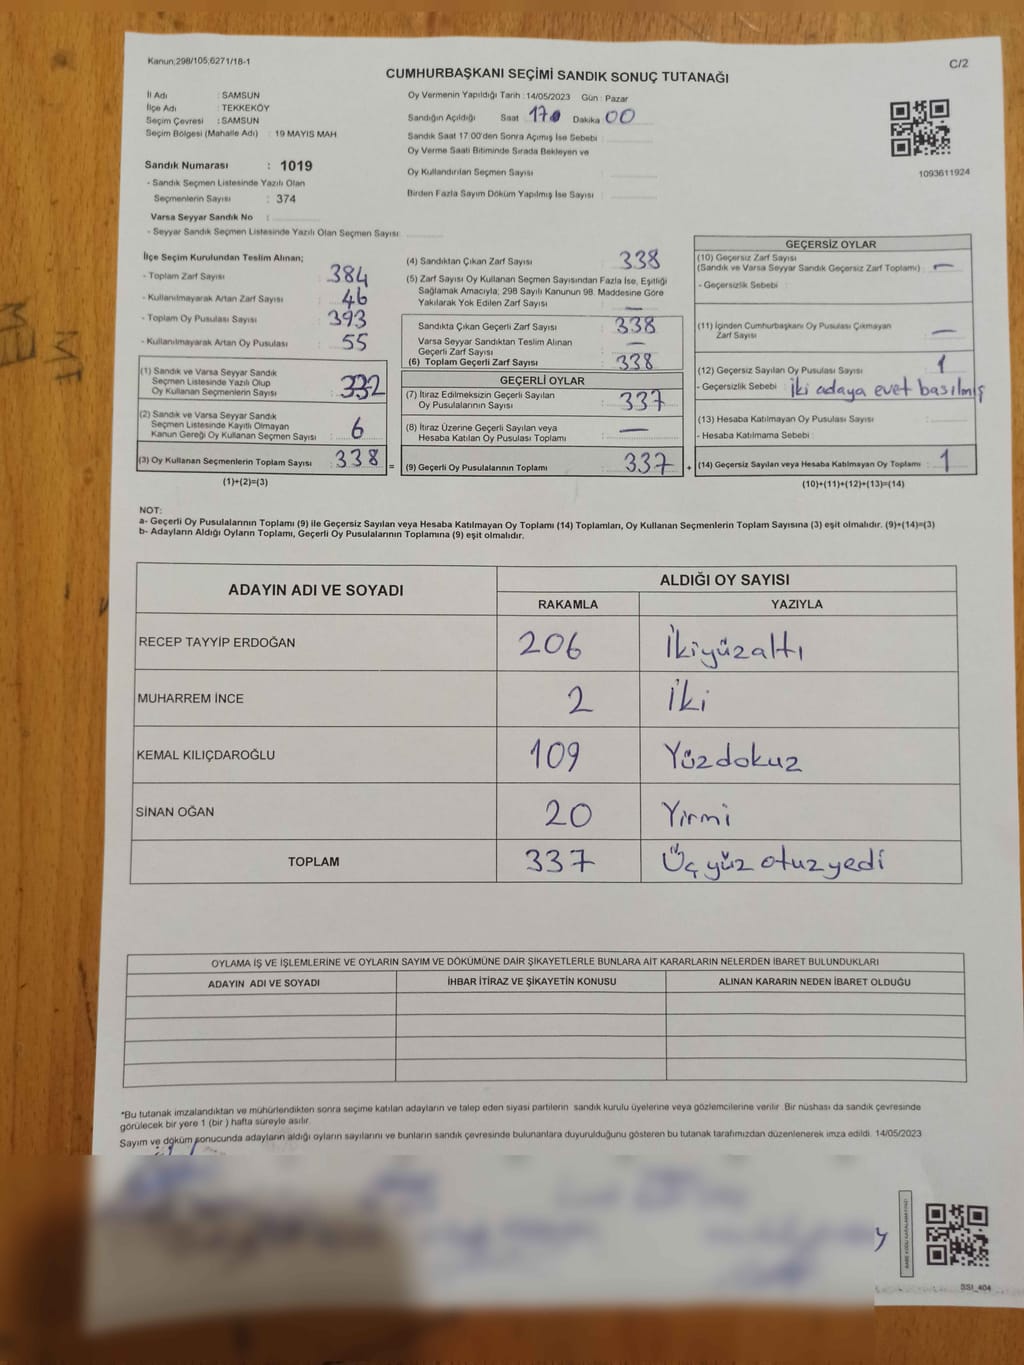 Kanun;298/105;6271/18-1
C/2
CUMHURBAŞKANI SEÇİMİ SANDIK SONUÇ TUTANAĞI
İl Adı : SAMSUN
İlçe Adı : TEKKEKÖY
Seçim Çevresi : SAMSUN
Seçim Bölgesi (Mahalle Adı) : 19 MAYIS MAH
Sandık Numarası : 1019
- Sandık Seçmen Listesinde Yazılı Olan
Seçmenlerin Sayısı : 374
Varsa Seyyar Sandık No :
- Seyyar Sandık Seçmen Listesinde Yazılı Olan Seçmen Sayısı:
Oy Vermenin Yapıldığı Tarih : 14/05/2023 Gün : Pazar
Sandığın Açıldığı Saat 17 Dakika 00
Sandık Saat 17:00'den Sonra Açımış İse Sebebi :
Oy Verme Saati Bitiminde Sırada Bekleyen ve
Oy Kullandırılan Seçmen Sayısı :
Birden Fazla Sayım Döküm Yapılmış İse Sayısı :
1093611924
İlçe Seçim Kurulundan Teslim Alınan;
- Toplam Zarf Sayısı : 384
- Kullanılmayarak Artan Zarf Sayısı : 46
- Toplam Oy Pusulası Sayısı : 393
- Kullanılmayarak Artan Oy Pusulası : 55
(1) Sandık ve Varsa Seyyar Sandık
Seçmen Listesinde Yazılı Olup
Oy Kullanan Seçmenlerin Sayısı : 332
(2) Sandık ve Varsa Seyyar Sandık
Seçmen Listesinde Kayıtlı Olmayan
Kanun Gereği Oy Kullanan Seçmen Sayısı : 6
(3) Oy Kullanan Seçmenlerin Toplam Sayısı : 338
(1)+(2)=(3)
(4) Sandıktan Çıkan Zarf Sayısı : 338
(5) Zarf Sayısı Oy Kullanan Seçmen Sayısından Fazla İse, Eşitliği
Sağlamak Amacıyla; 298 Sayılı Kanunun 98. Maddesine Göre
Yakılarak Yok Edilen Zarf Sayısı : —
Sandıkta Çıkan Geçerli Zarf Sayısı : 338
Varsa Seyyar Sandıktan Teslim Alınan
Geçerli Zarf Sayısı : —
(6) Toplam Geçerli Zarf Sayısı : 338
GEÇERLİ OYLAR
(7) İtiraz Edilmeksizin Geçerli Sayılan
Oy Pusulalarının Sayısı : 337
(8) İtiraz Üzerine Geçerli Sayılan veya
Hesaba Katılan Oy Pusulası Toplamı : —
= (9) Geçerli Oy Pusulalarının Toplamı : 337
GEÇERSİZ OYLAR
(10) Geçersiz Zarf Sayısı
(Sandık ve Varsa Seyyar Sandık Geçersiz Zarf Toplamı) : —
- Geçersizlik Sebebi :
(11) İçinden Cumhurbaşkanı Oy Pusulası Çıkmayan
Zarf Sayısı : —
(12) Geçersiz Sayılan Oy Pusulası Sayısı : 1
- Geçersizlik Sebebi : İki adaya evet basılmış
(13) Hesaba Katılmayan Oy Pusulası Sayısı :
- Hesaba Katılmama Sebebi :
+ (14) Geçersiz Sayılan veya Hesaba Katılmayan Oy Toplamı : 1
(10)+(11)+(12)+(13)=(14)
NOT:
a- Geçerli Oy Pusulalarının Toplamı (9) ile Geçersiz Sayılan veya Hesaba Katılmayan Oy Toplamı (14) Toplamları, Oy Kullanan Seçmenlerin Toplam Sayısına (3) eşit olmalıdır. (9)+(14)=(3)
b- Adayların Aldığı Oyların Toplamı, Geçerli Oy Pusulalarının Toplamına (9) eşit olmalıdır.
ADAYIN ADI VE SOYADI
ALDIĞI OY SAYISI
RAKAMLA YAZIYLA
RECEP TAYYİP ERDOĞAN 206 İkiyüzaltı
MUHARREM İNCE 2 İki
KEMAL KILIÇDAROĞLU 109 Yüzdokuz
SİNAN OĞAN 20 Yirmi
TOPLAM 337 Üçyüzotuzyedi
OYLAMA İŞ VE İŞLEMLERİNE VE OYLARIN SAYIM VE DÖKÜMÜNE DAİR ŞİKAYETLERLE BUNLARA AİT KARARLARIN NELERDEN İBARET BULUNDUKLARI
ADAYIN ADI VE SOYADI İHBAR İTİRAZ VE ŞİKAYETİN KONUSU ALINAN KARARIN NEDEN İBARET OLDUĞU
*Bu tutanak imzalandıktan ve mühürlendikten sonra seçime katılan adayların ve talep eden siyasi partilerin sandık kurulu üyelerine veya gözlemcilerine verilir. Bir nüshası da sandık çevresinde
görülecek bir yere 1 (bir) hafta süreyle asılır.
Sayım ve döküm sonucunda adayların aldığı oyların sayılarını ve bunların sandık çevresinde bulunanlara duyurulduğunu gösteren bu tutanak tarafımızdan düzenlenerek imza edildi. 14/05/2023